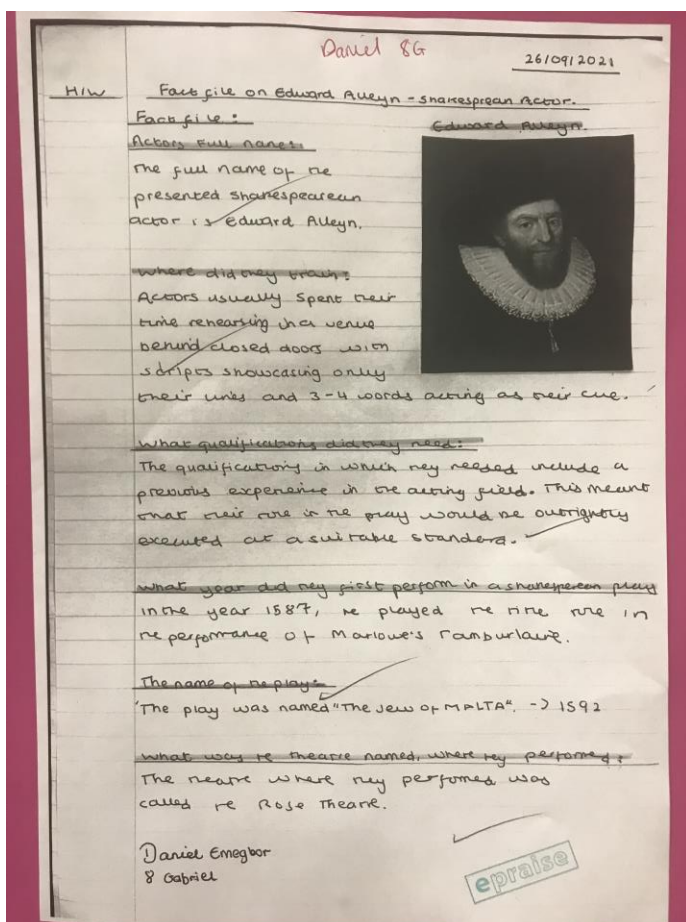 Daniel 8G
26/09/2021
H/W Fact file on Edward Alleyn - Shakesprean Actor.
Fact file: Edward Alleyn.
Actors Full name:
The full name of the
presented Shakespearean
actor is Edward Alleyn.
Where did they train:
Actors usually spent their
time rehearsing in a venue
behind closed doors with
scripts showcasing only
their lines and 3-4 words acting as their cue.
What qualifications did they need:
The qualifications in which they needed include a
previous experience in the acting field. This meant
that their role in the play would be outrightly
executed at a suitable standerd.
What year did they first perform in a shakesperean play
in the year 1587, he played the title role in
the performance of Marlowe's Tamburlaine.
The name of the play:
"The play was named "The Jew of MALTA". -> 1592
What was the theatre named, where they performed:
The theatre where they perfomed was
called the Rose Theatre.
Daniel Emegbor
8 Gabriel
epraise